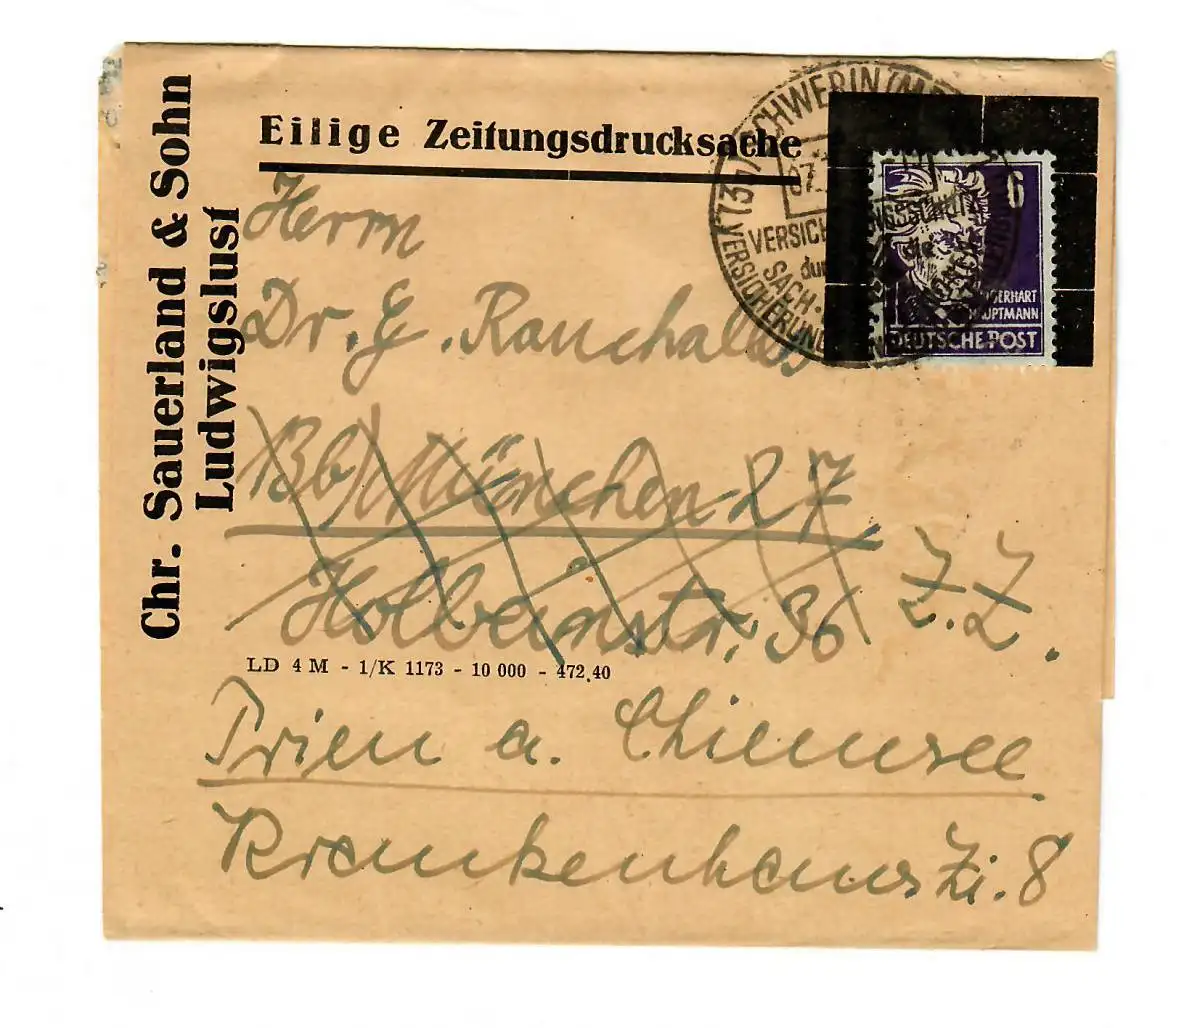 Chr. Sauerland & Sohn
Ludwigslust
Eilige Zeitungsdrucksache
Herrn
Dr. E. Rauchalles
13b/ München 27
Holbeinstr. 36
Z. Z.
LD 4 M - 1/K 1173 - 10 000 - 472.40
Prien a. Chiemsee
Krankenhaus Zi. 8
6
GERHART
HAUPTMANN
DEUTSCHE POST
SCHWERIN (ME
VERSICH
SSCHUTZ
SACH-
VERSICHERUN